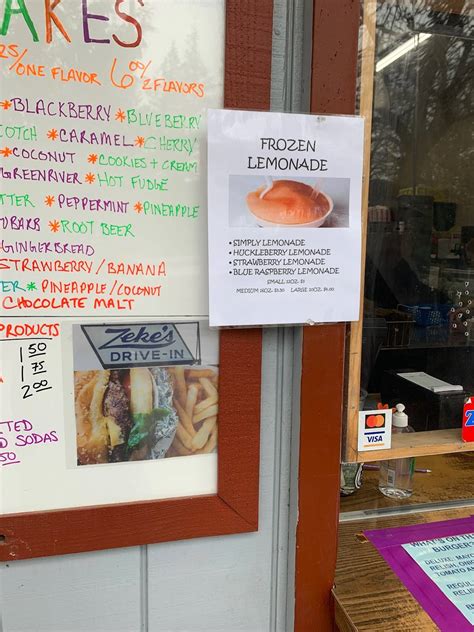 AKES
/ONE FLAVOR 6 00/2 FLAVORS
*BLACKBERRY *BLUEBERRY
*CARAMEL *CHERRY
*COCONUT *COOKIES + CREAM
GREENRIVER *HOT FUDGE
*PEPPERMINT *PINEAPPLE
*ROOT BEER
GINGERBREAD
STRAWBERRY/BANANA
* PINEAPPLE/COCONUT
CHOCOLATE MALT
PRODUCTS
1 50
1 75
2 00
SODAS
50
Zeke's
DRIVE-IN
FROZEN
LEMONADE
• SIMPLY LEMONADE
• HUCKLEBERRY LEMONADE
• STRAWBERRY LEMONADE
• BLUE RASPBERRY LEMONADE
VISA
WHAT'S ON
BURGER'S
DELUXE:
RELISH,
TOMATO
RELISH